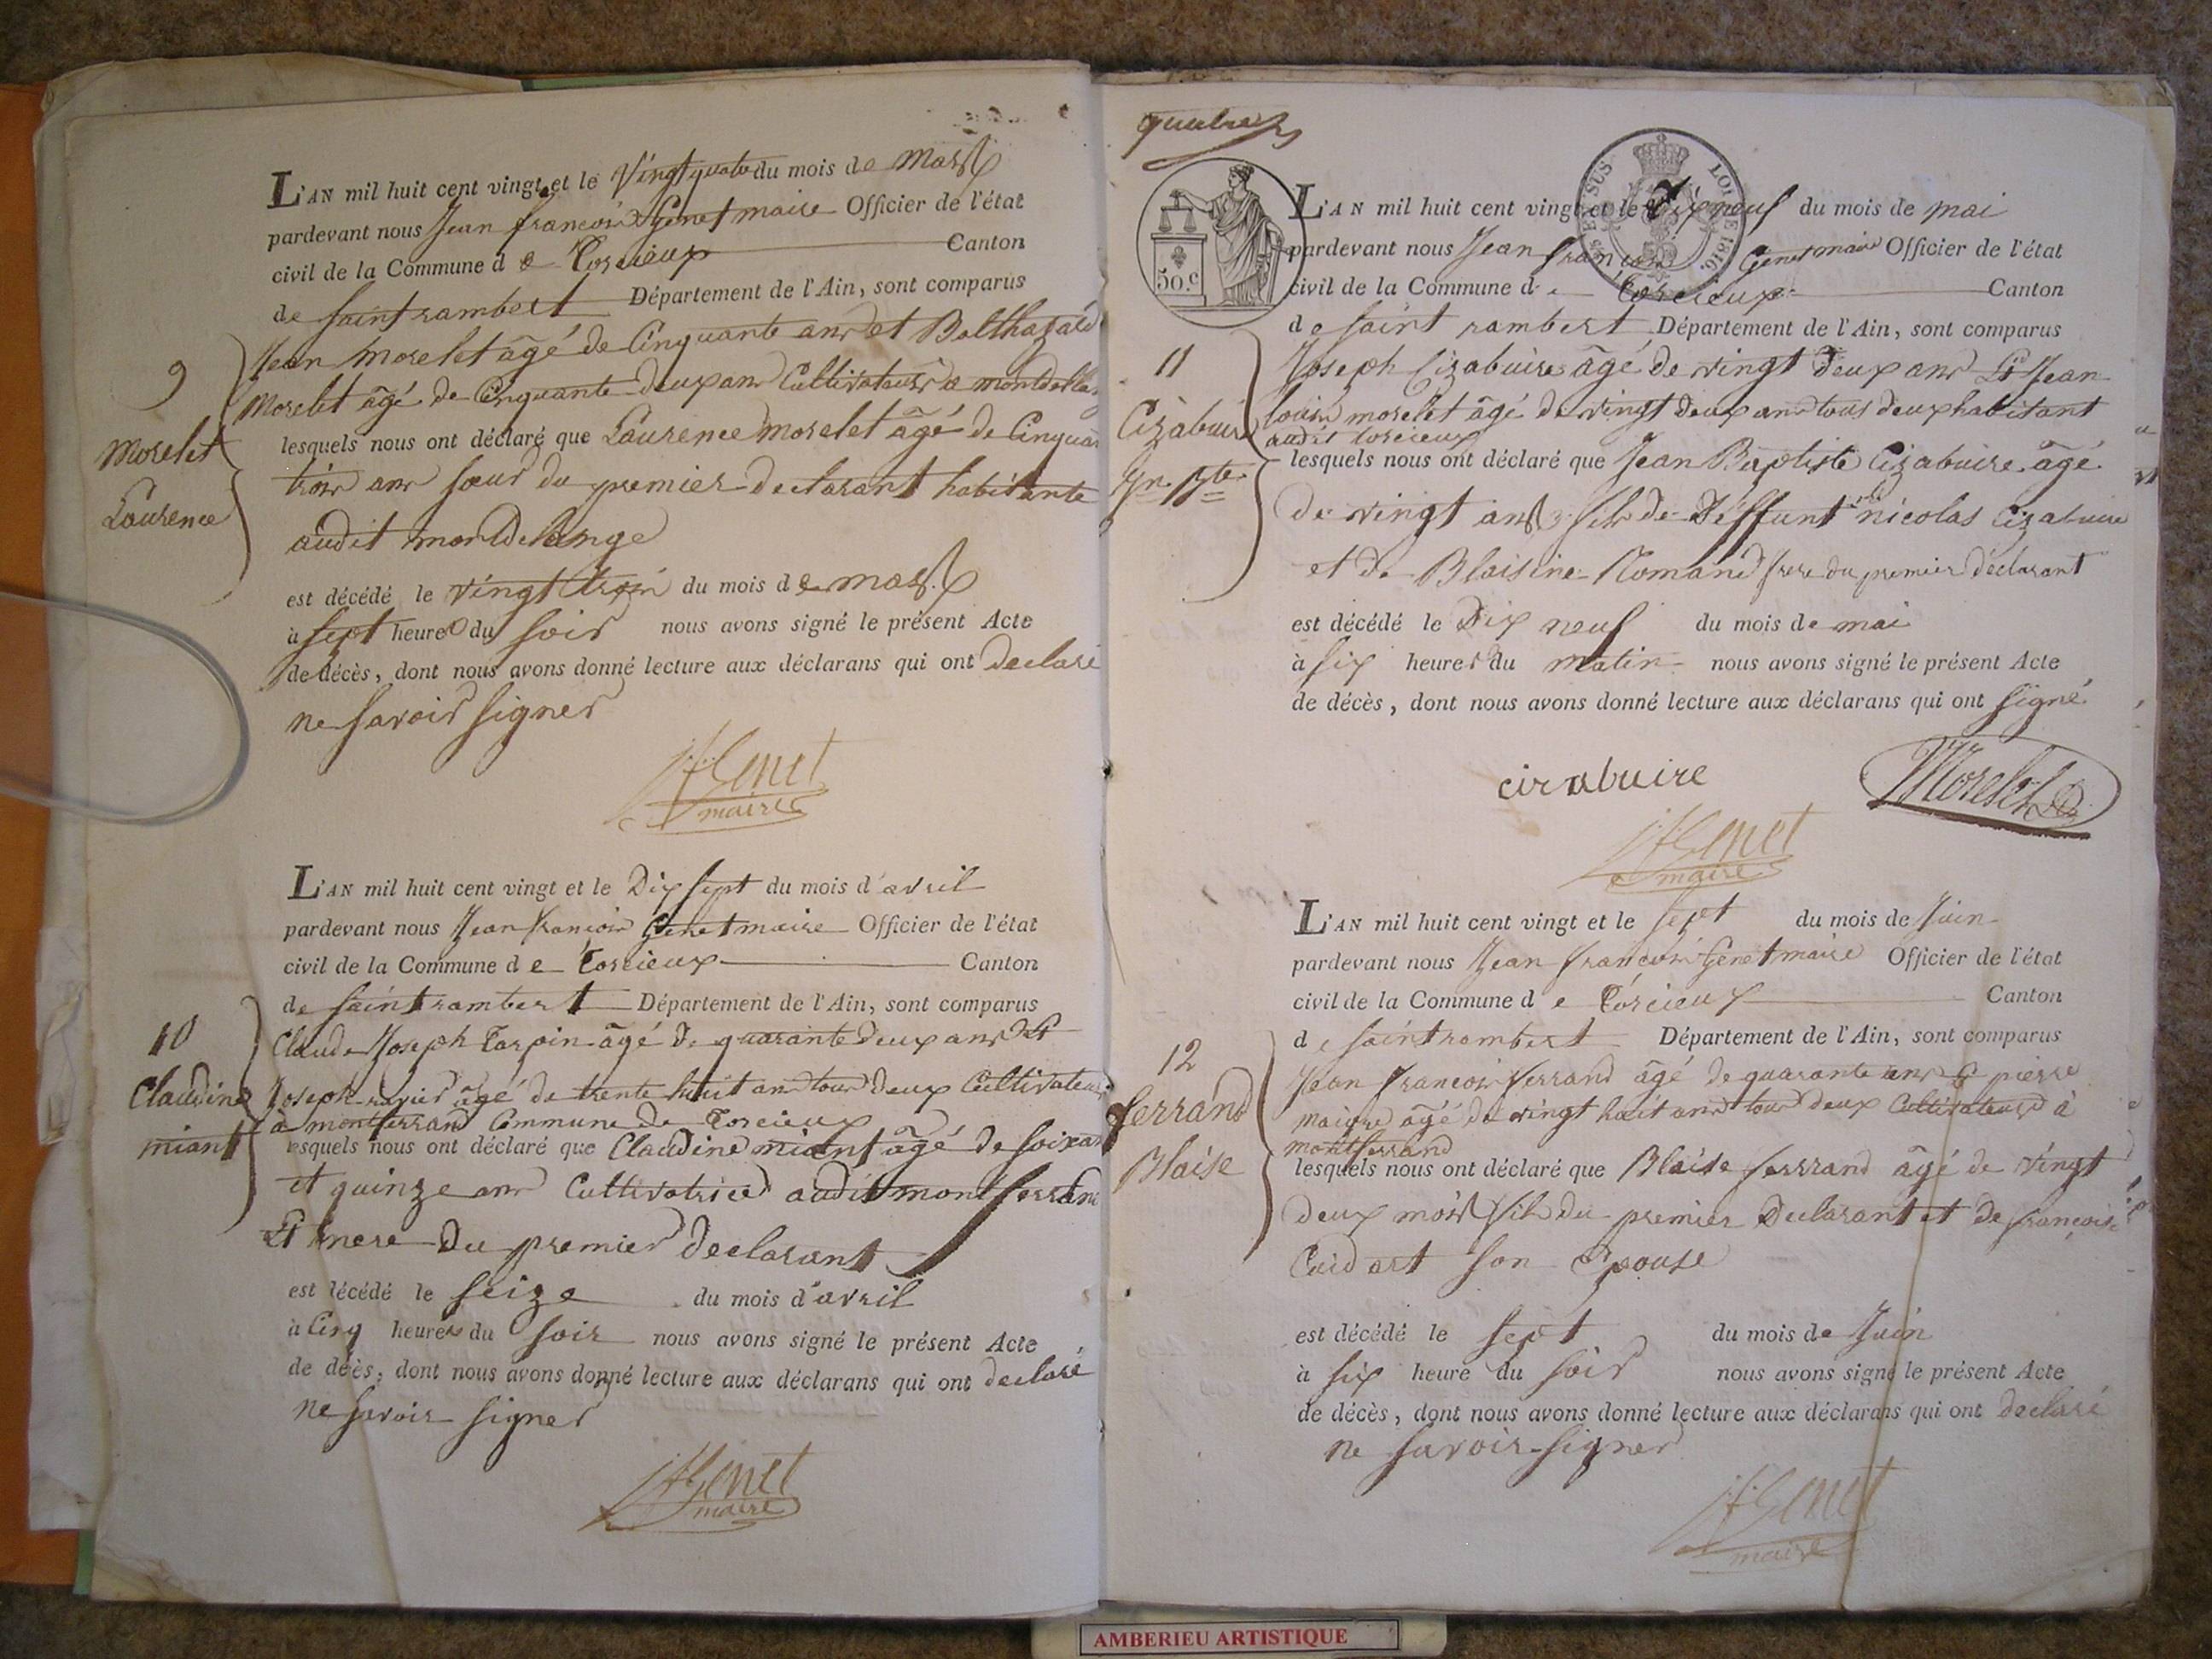 L'AN mil huit cent vingt et le vingt quatre du mois de mars
pardevant nous Jean françois Genet maire Officier de l'état
civil de la Commune de Torcieux Canton
de saint rambert Département de l'Ain, sont comparus
Jean morelet âgé de Cinquante ans et Balthazard
morelet âgé de Cinquante deux ans Cultivateurs a
lesquels nous ont déclaré que Laurence morelet âgé de Cinquan
trois ans sœur du premier declarant habitante
audit montdelange
est décédé le vingt trois du mois de mars
à sept heures du soir nous avons signé le présent Acte
de décès, dont nous avons donné lecture aux déclarans qui ont declaré
ne savoir signer
9
Morelet
Laurence
JfGenet
maire
L'AN mil huit cent vingt et le Dix sept du mois d'avril
pardevant nous Jean françois Genet maire Officier de l'état
civil de la Commune de Torcieux Canton
de saint rambert Département de l'Ain, sont comparus
Claude Joseph Tarpin âgé de quarante deux ans Et
Joseph ravier âgé de trente huit ans tous deux Cultivateurs
à montferrand Commune de Torcieux
lesquels nous ont déclaré que Claudine miant âgé de soixan
et quinze ans Cultivatrice audit montferrand
Et mere du premier declarant
est décédé le seize du mois d'avril
à Cinq heures du soir nous avons signé le présent Acte
de décès, dont nous avons donné lecture aux déclarans qui ont declaré
ne savoir signer
10
Claudine
miant
JfGenet
maire
quatre
50.c
LOI DE 1816.
L'AN mil huit cent vingt et le Dix neuf du mois de mai
pardevant nous Jean françois Genet maire Officier de l'état
civil de la Commune de Torcieux Canton
de saint rambert Département de l'Ain, sont comparus
Joseph Cizabuire âgé de vingt deux ans Et Jean
louis morelet âgé de vingt deux ans tous deux habitant
audit torcieux
lesquels nous ont déclaré que Jean Baptiste Cizabuire âgé
de vingt ans fils de Deffunt nicolas Cizabuire
et de Blaisine Romand frere du premier déclarant
est décédé le Dix neuf du mois de mai
à six heures du matin nous avons signé le présent Acte
de décès, dont nous avons donné lecture aux déclarans qui ont signé
11
Cizabuire
Jn Bte
cirabuire
Morelet
JfGenet
maire
L'AN mil huit cent vingt et le sept du mois de Juin
pardevant nous Jean françois Genet maire Officier de l'état
civil de la Commune de Torcieux Canton
de saint rambert Département de l'Ain, sont comparus
Jean françois ferrand âgé de quarante ans Et pierre
maigre âgé de vingt huit ans tous deux Cultivateurs à
montferrand
lesquels nous ont déclaré que Blaise ferrand âgé de vingt
deux mois fils du premier Declarant et de françoise
son Epouse
est décédé le sept du mois de Juin
à six heure du soir nous avons signé le présent Acte
de décès, dont nous avons donné lecture aux déclarans qui ont declaré
ne savoir signer
12
ferrand
Blaise
JfGenet
maire
AMBERIEU ARTISTIQUE